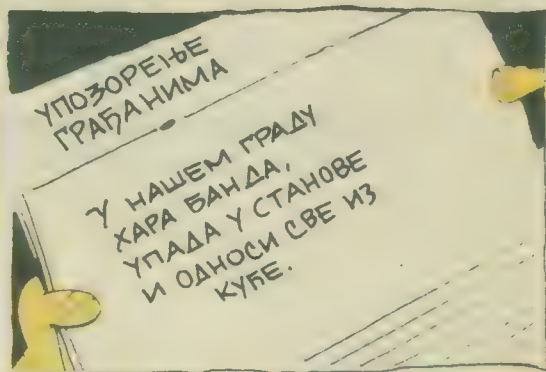 УПОЗОРЕЊЕ
ГРАЂАНИМА
У НАШЕМ ГРАДУ
ХАРА БАНДА,
УПАДА У СТАНОВЕ
И ОДНОСИ СВЕ ИЗ
КУЋЕ.